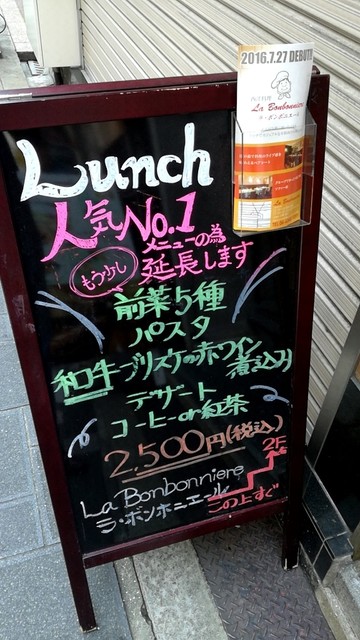 2016.7.27 DEBUT
西洋料理
La Bonbonniere
ラ・ボンボニエール
Lunch
人気No.1
メニューの為
もう少し
延長します
前菜5種
パスタ
和牛ブリスケの赤ワイン
煮込み
デザート
コーヒーor紅茶
2,500円(税込)
2F
La Bonbonniere
ラ・ボンボニエール
この上すぐ